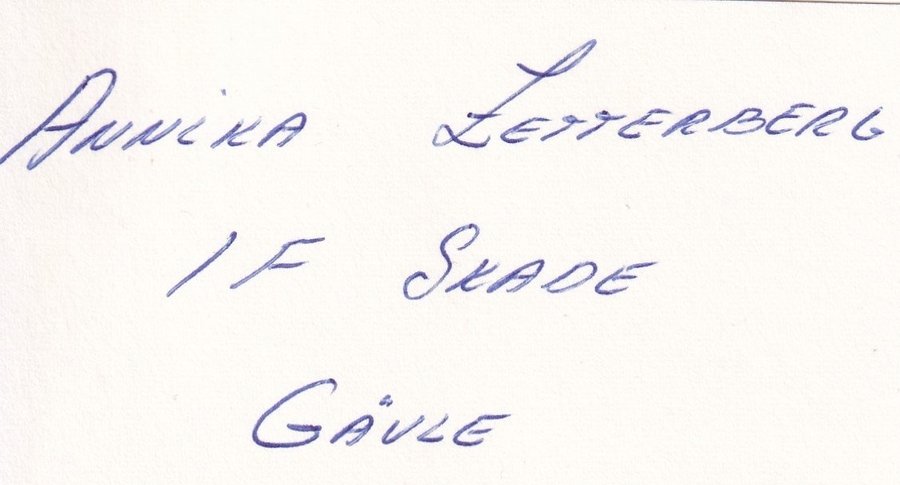 Annika Zetterberg
IF Skade
Gävle